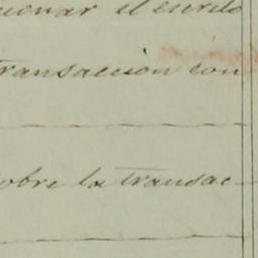 cionar el escrito
transaccion con
sobre la transac-